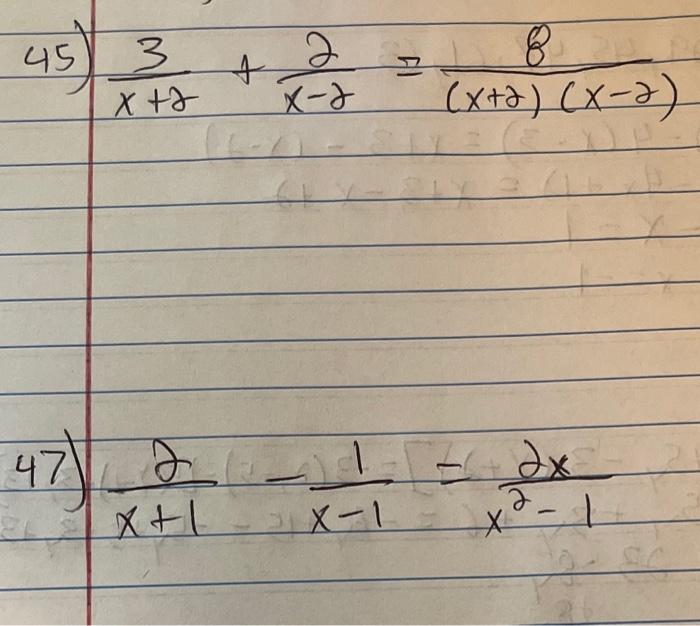 45) 3/(x+2) + 2/(x-2) = 8/((x+2)(x-2))
47) 2/(x+1) - 1/(x-1) = 2x/(x²-1)